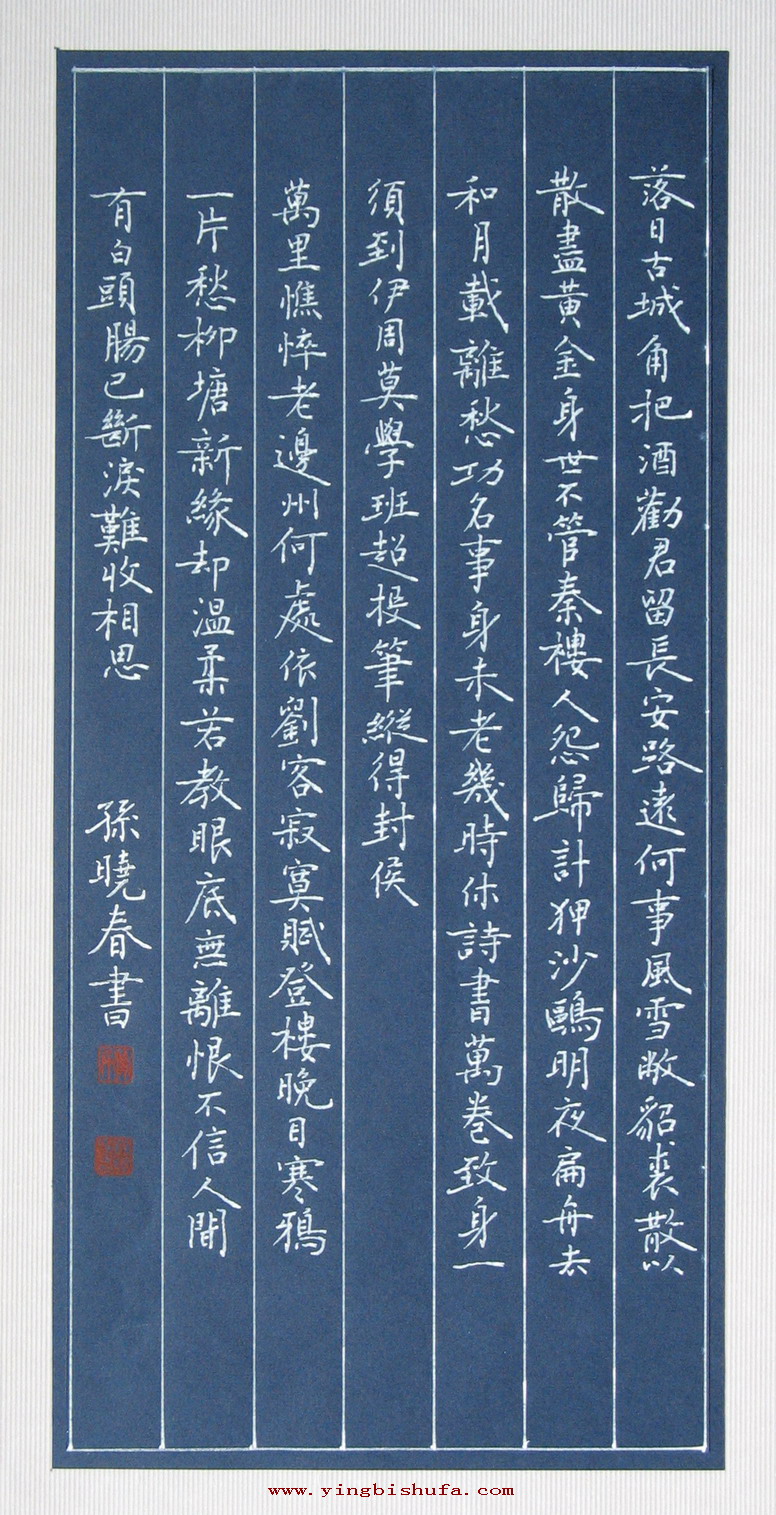 落日古城角把酒勸君留長安路遠何事風雪敝貂裘散以
散盡黃金身世不管秦樓人怨歸計狎沙鷗明夜扁舟去
和月載離愁功名事身未老幾時休詩書萬卷致身一
須到伊周莫學班超投筆縱得封侯
萬里憔悴老邊州何處依劉客寂寞賦登樓晚目寒鴉
一片愁柳塘新緣却温柔若教眼底無離恨不信人間
有白頭腸已斷淚難收相思
孫曉春書
www.yingbishufa.com